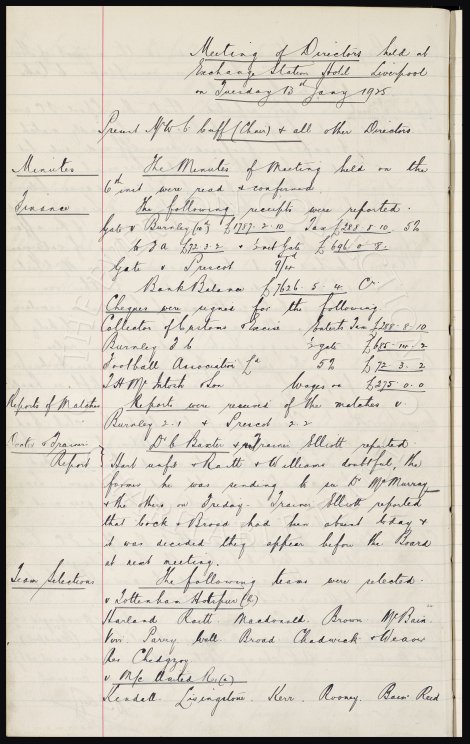 Meeting of Directors held at
Exchange Station Hotel Liverpool
on Tuesday 13th Jany 1925
Present Mr W. C. Cuff (Chair) & all other Directors
Minutes The Minutes of Meeting held on the
6th inst were read & confirmed
Finance The following receipts were reported.
Gate v Burnley (10th) £1787. 2. 10 Tax £288. 8. 10. 5%
to F A £72. 3. 2 & ½ net Gate £ 685. 0. 8.
Gate v Prescot
Bank Balance £7626. 5. 4. Cr
Cheques were signed for the following
Collector of Customs & Excise Enterts Tax £288 - 8 - 10
Burnley F C ½ gate £685 - 10 - 2
Football Association Ld 5% £72. 3. 2
J H McIntosh Wages £275. 0. 0
Reports of Matches Reports were received of the matches v
Burnley 2.1 & Prescot 2.2
Doctor & Trainers Report Dr C Baxter & Trainer Elliott reported
Hart unfit & Raitt & Williams doubtful, the
former he was sending to see Dr McMurray
& the others on Friday. Trainer Elliott reported
that Cock & Broad had been absent today &
it was decided they appear before the Board
at next meeting.
Team Selections The following teams were selected.
v Tottenham Hotspur
Harland Raitt Macdonald. Brown McBain
Parry Wall Broad Chadwick & Weaver
Res Chedgzoy
v M/c United Res (a)
Kendall. Livingstone. Kerr. Rooney. Bain. Reid